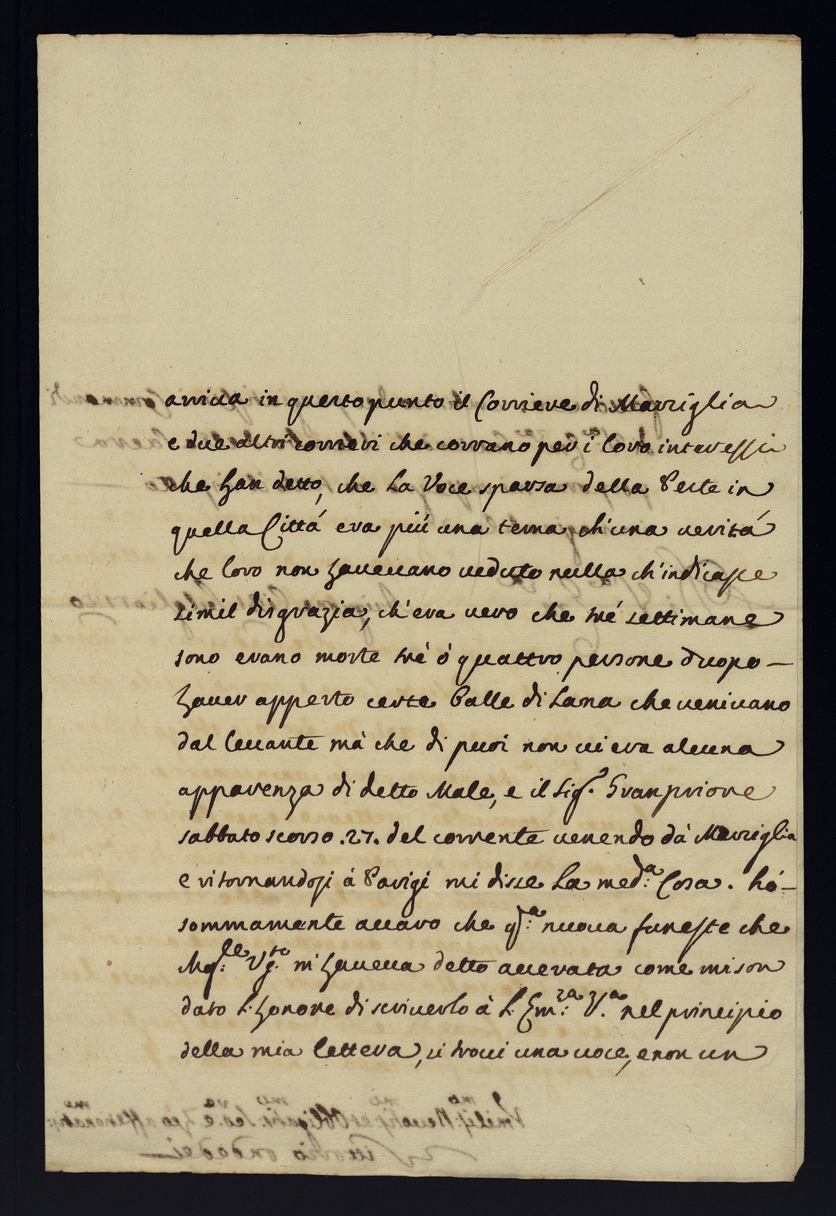 arriva in questo punto il Corriere di Marziglia
e due altri corrieri che corrano per i loro interessi
che han detto, che La Voce sparsa della Peste in
quella Cittá era piú una tema ch'una veritá
che loro non havevano veduto nulla ch'indicasse
simil disgrazia, ch'era vero che tré settimane
sono erano morte tré ó quattro persone duopo -
haver apperto certe Balle di Lana che venivano
dal levante má che di puoi non vi era alcuna
apparenza di detto Male, e il Sig.r Granpriore
sabbato scorso .27. del corrente venendo dá Marziglia
e ritornandosi á Parigi mi disse La med.a Cosa. hó -
sommamente accaro che q.a nuova funeste che
m'haveva detto accerata come mi son
dato l'honore di scriverlo á L'Em.za V.a nel principio
della mia lettera, si trovi una voce, e non un